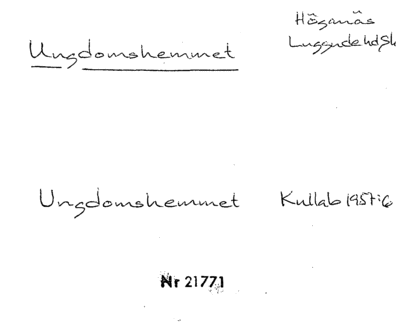 Ungdomshemmet
Höganäs
Luggude hd Sk
Ungdomshemmet Kullab 1957:6
Nr 21771